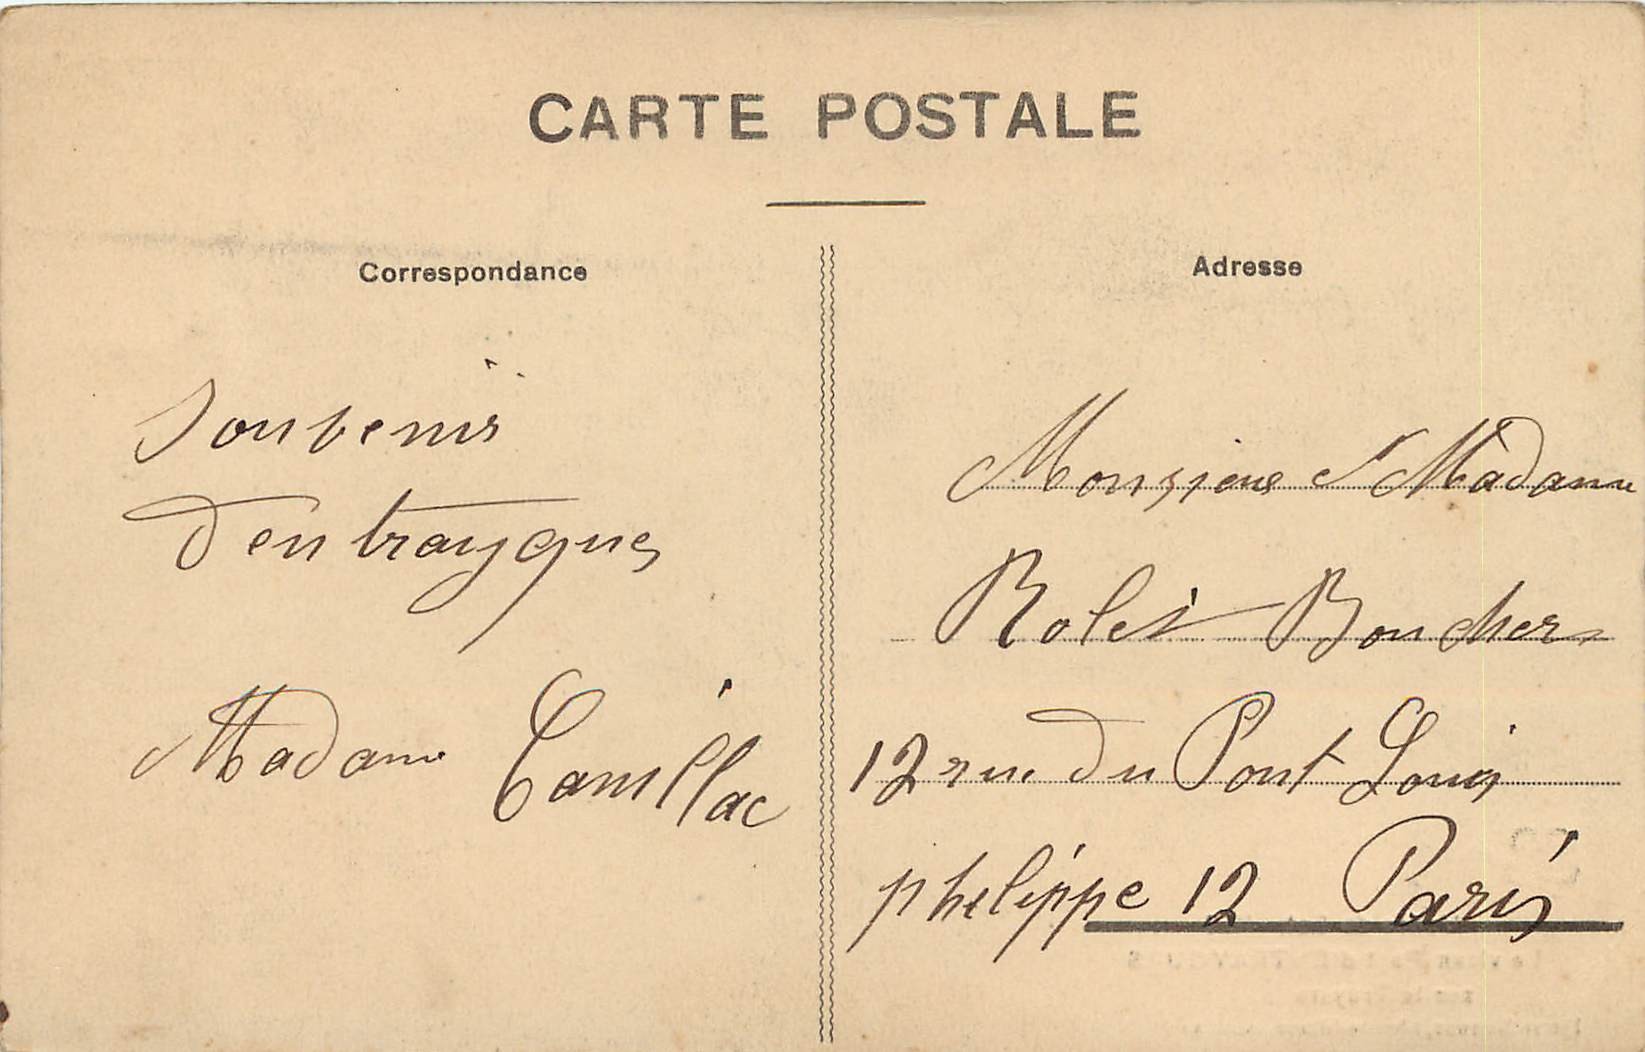 CARTE POSTALE
Correspondance
Souvenir
d'entraygues
Madame
Adresse
Monsieur et Madame
Rolet Boucher
12 rue du Pont Louis
phelippe 12 Paris